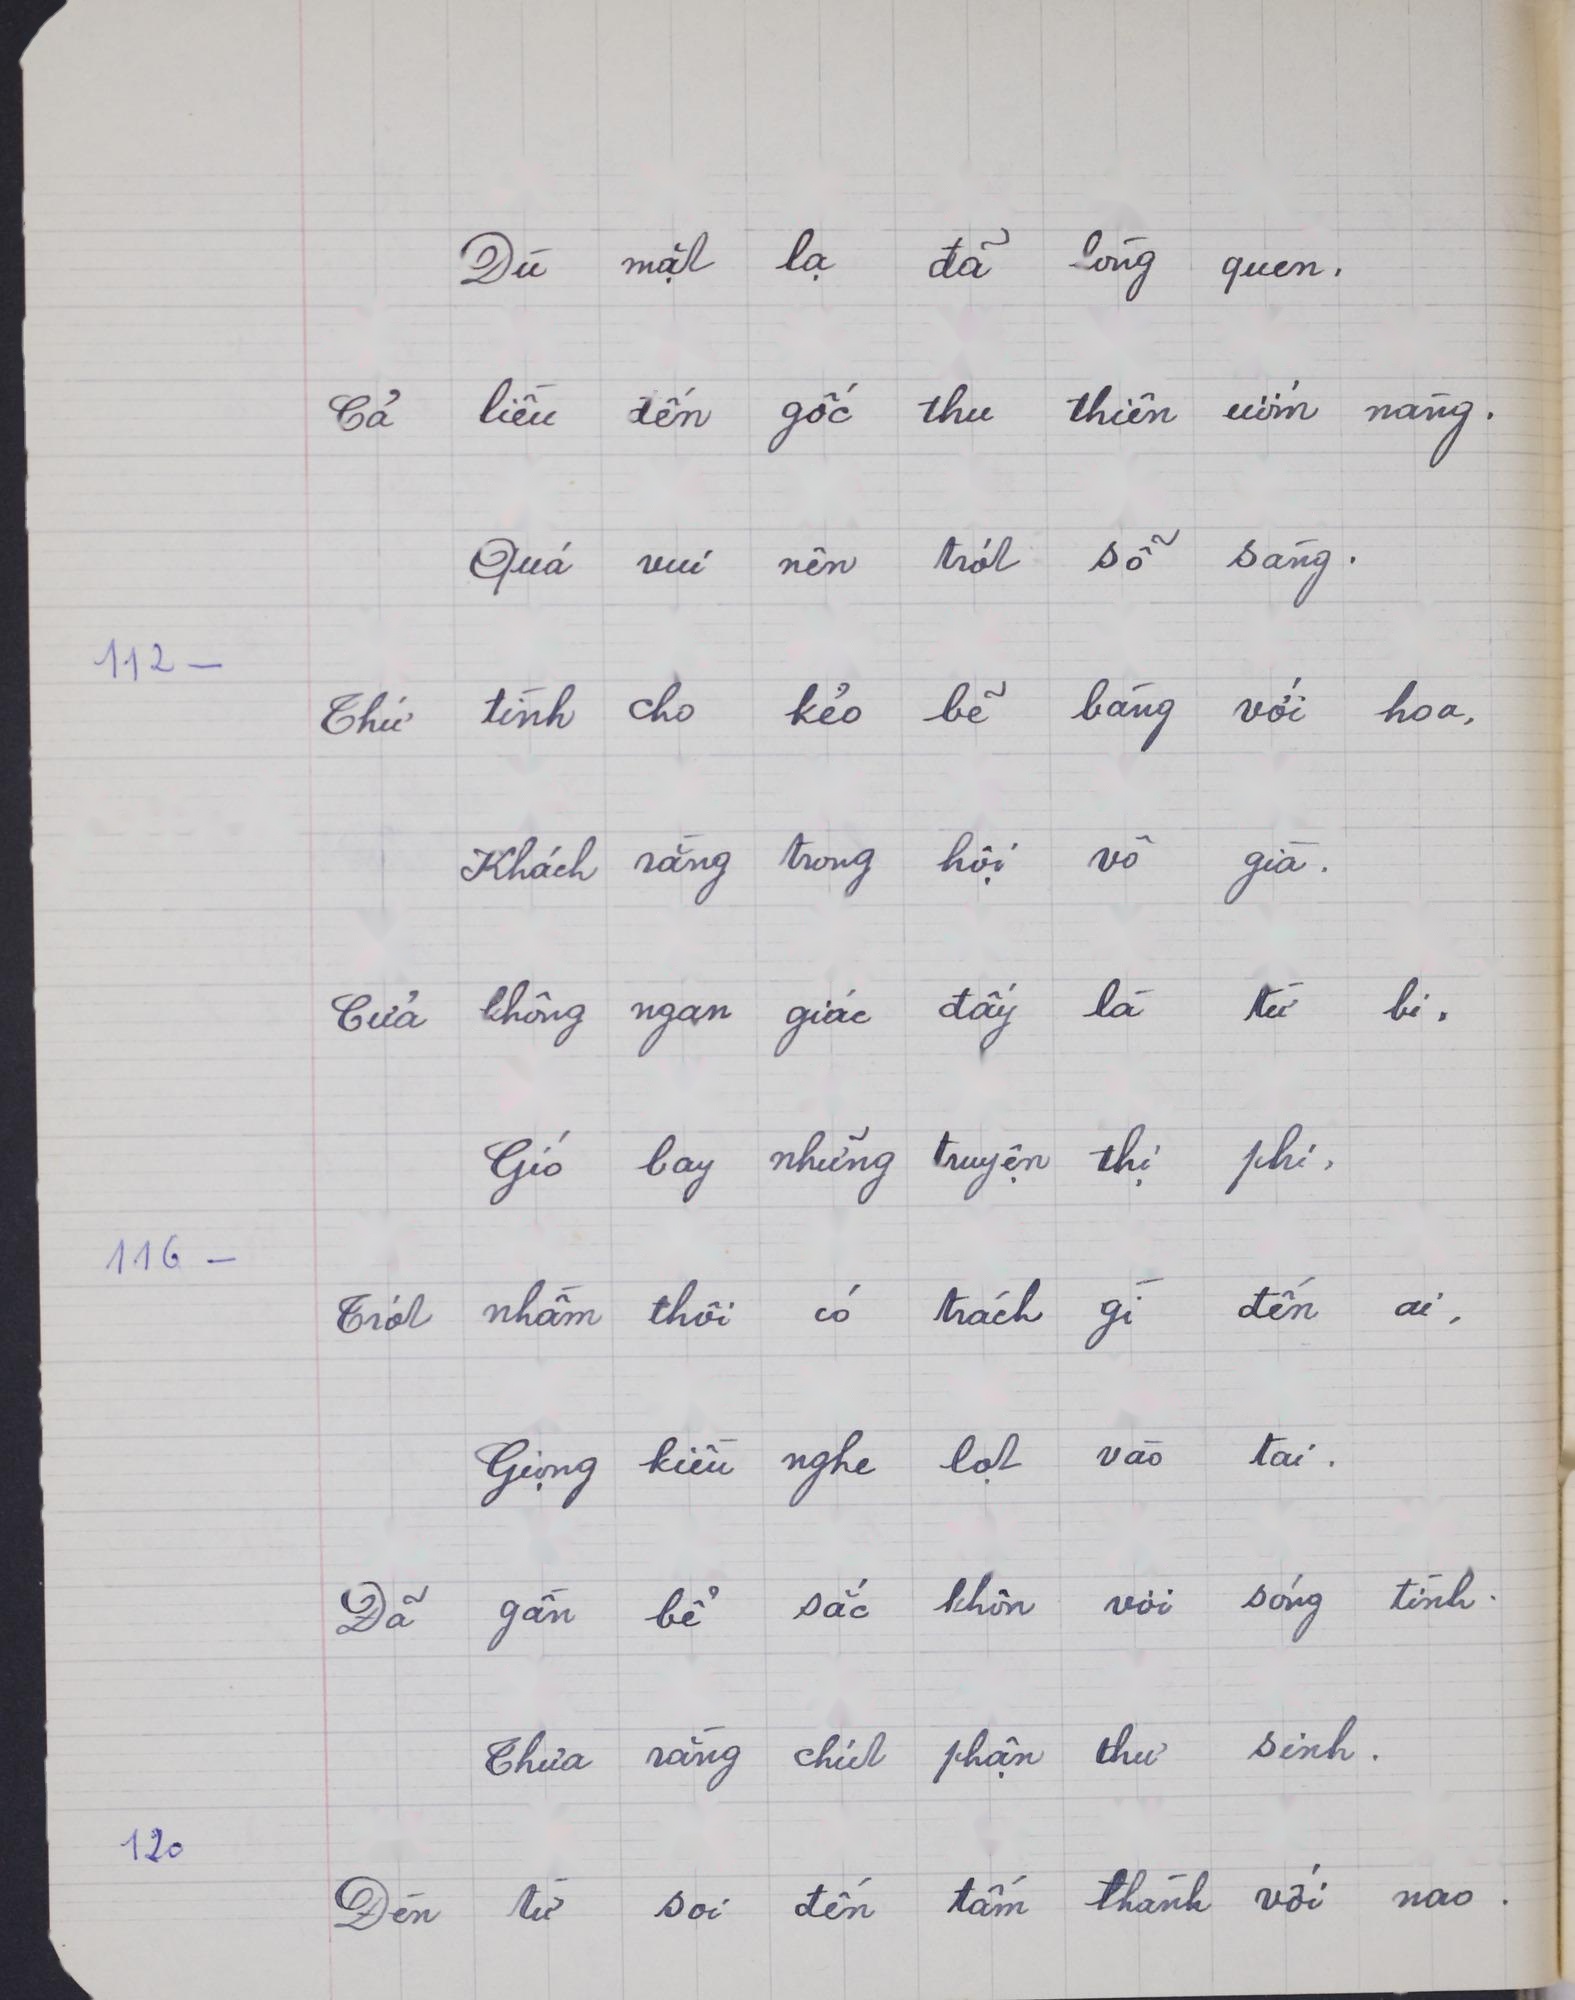 Dù mặt lạ đã lòng quen.
Cả liều đến gốc thu thiên ướm nàng.
Quá vui nên trót sỗ sàng.
112 —
Thứ tình cho kẻo bẽ bàng với hoa.
Khách rằng trong hội vô già.
Cửa không ngan giác đấy là từ bi.
Gió bay những truyện thị phi.
116 —
Trót nhầm thôi có trách gì đến ai.
Giọng kiều nghe lọt vào tai.
Đã gần bể sắc khôn vơi sóng tình.
Thưa rằng chút phận thư sinh.
120
Đèn từ soi đến tấm thành với nao.